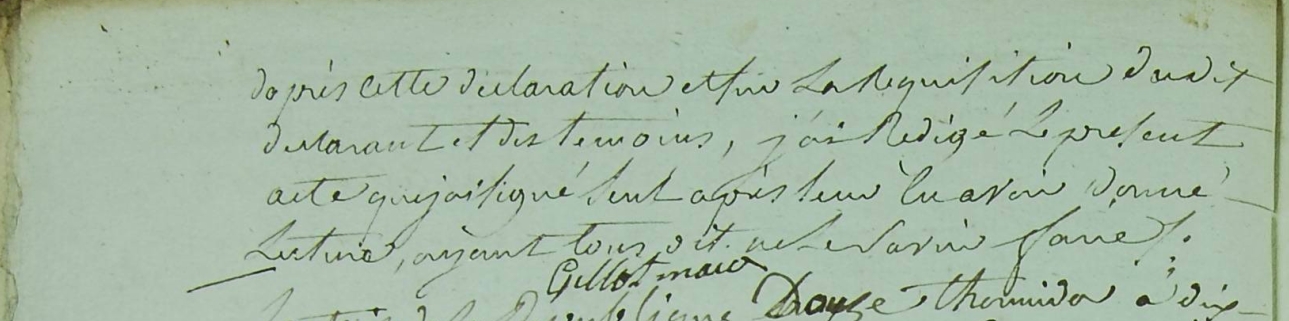 daprés cette declaration et sur la Requisition dudit
declarant et des temoins, j'ai Redigé le present
acte que j'ai signé seul après leur En avoir donné
Lecture, ayant tous dit ne le savoir faire /.
Gillot maire
Republique Douze thermidor à dix